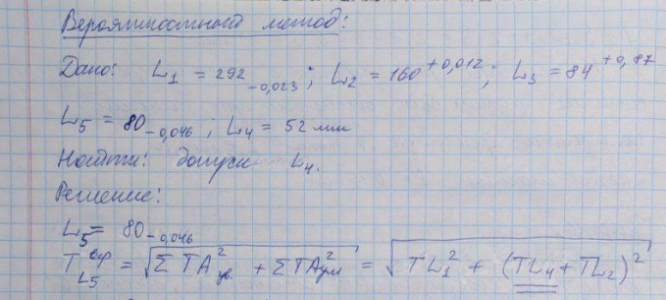 Вероятностный метод:
Дано: L₁ = 292₋₀,₀₂₃; L₂ = 160⁺⁰,⁰¹²; L₃ = 84⁺⁰,⁸⁷
L₅ = 80₋₀,₀₄₆; L₄ = 52 мм
Найти: допуск L₄.
Решение:
L₅ = 80₋₀,₀₄₆
T_L₅^вер = √(Σ TA²ув + Σ TA²ум) = √(TL₁² + (TL₄ + TL₂)²)